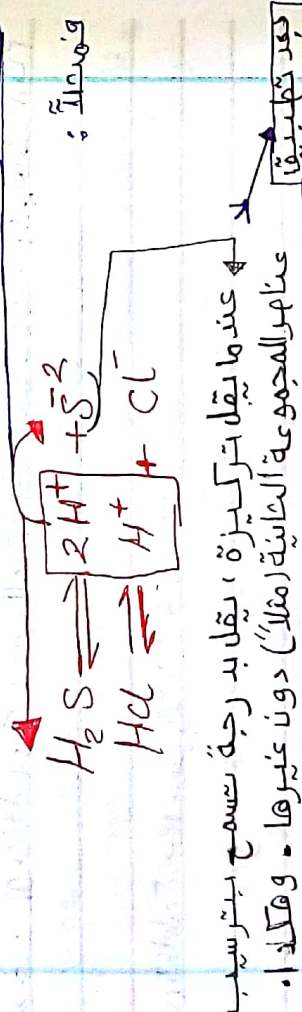 فمثلاً :
H₂S ⇌ 2H⁺ + S⁻²
HCl ⇌ H⁺ + Cl⁻
عندما يقل تركيزة ، يقل بدرجة تسمح بترسيب
عناصر المجموعة الثانية (مثلاً) دون غيرها . وهكذا .